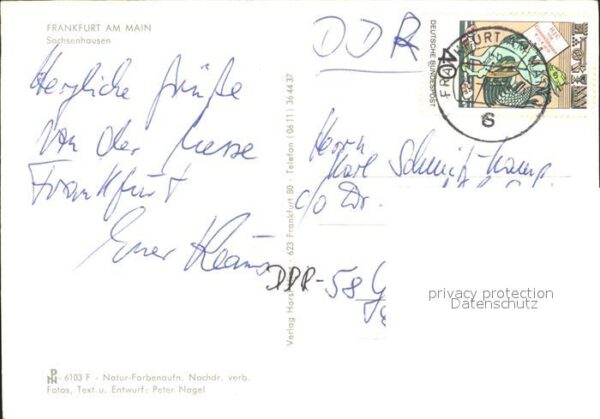 FRANKFURT AM MAIN
Sachsenhausen
Herzliche Grüße
von der Messe
Frankfurt
Euer Klaus
6103 F - Natur-Farbenaufn. Nachdr. verb.
Fotos, Text u. Entwurf: Peter Nagel
Verlag Horst 623 Frankfurt 80 - Telefon (06 11) 36 44 37
DDR
DEUTSCHE BUNDESPOST
40
FRANKFURT AM MAIN
S
Herrn
Karl Schmitz-
c/o Dr.
DDR-58 G
privacy protection
Datenschutz